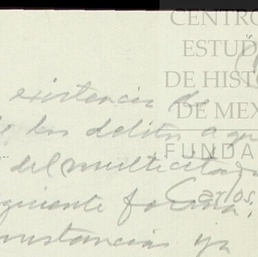 CENTRO
ESTUD
DE HIST
DE MEX
FUNDA
Carlos
existencia de
los delitos a qu
del multicitado
quiente forma:
unstancias ya